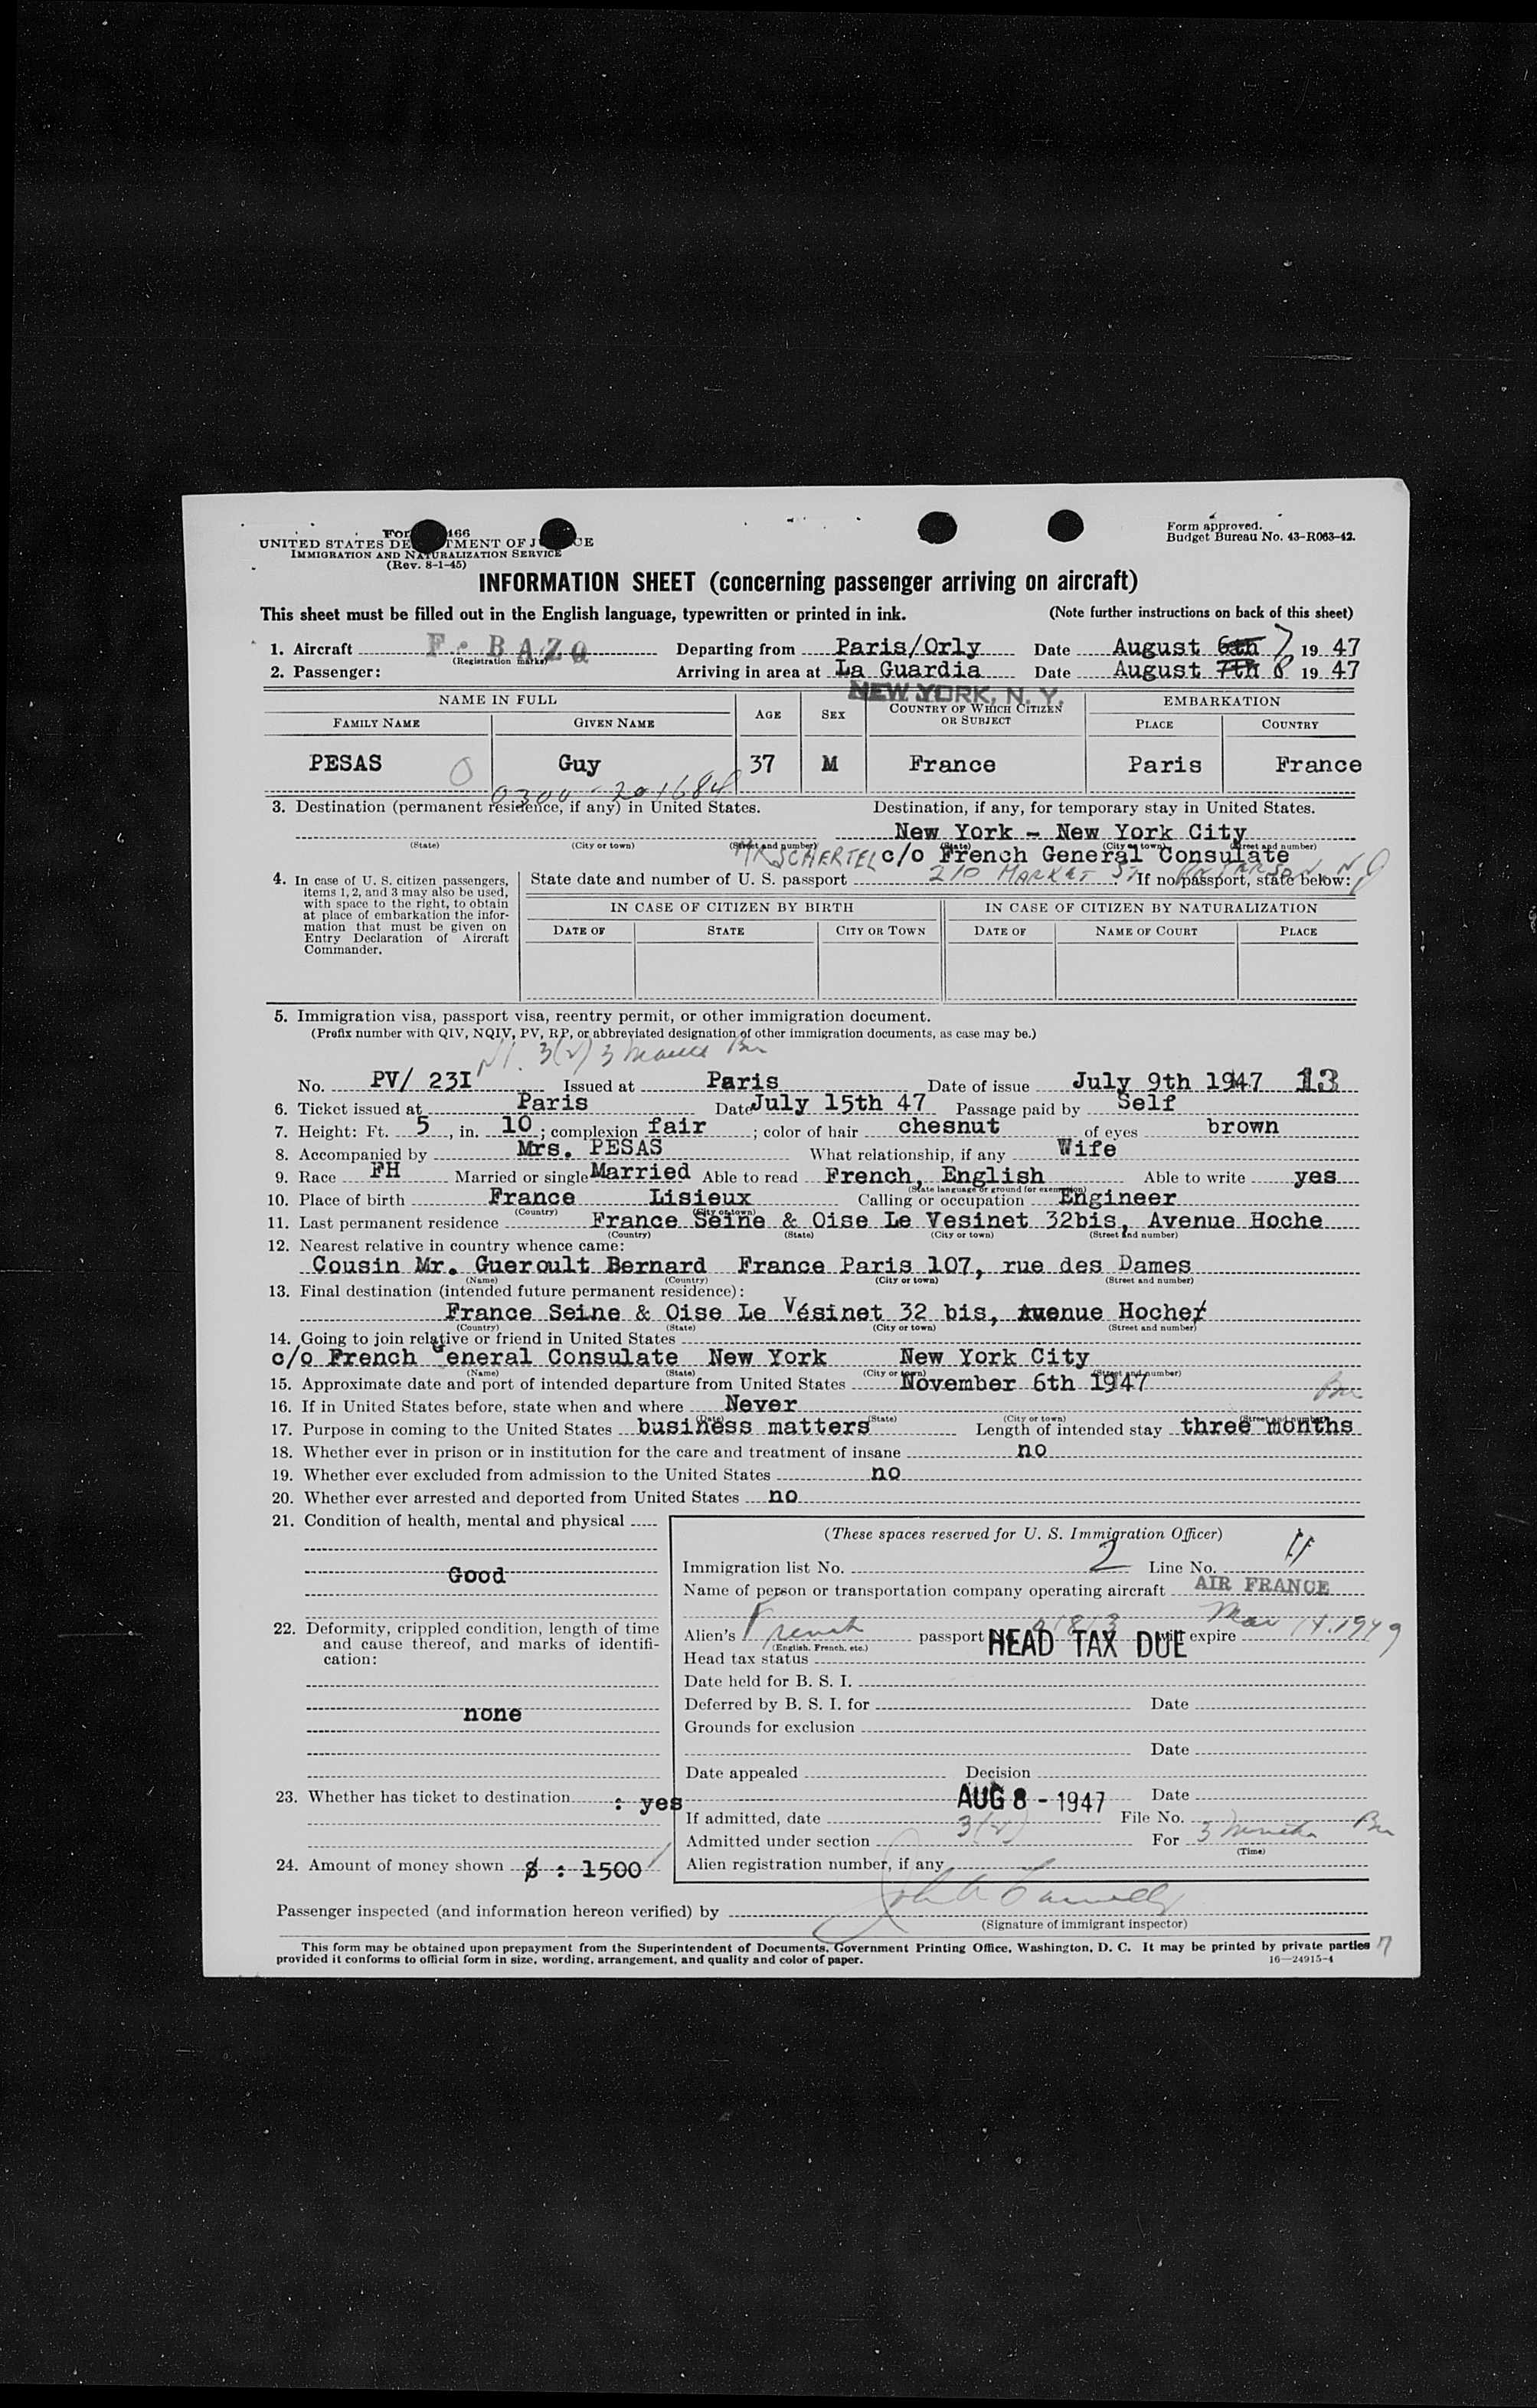 Form 466
UNITED STATES DEPARTMENT OF JUSTICE
IMMIGRATION AND NATURALIZATION SERVICE
(Rev. 8-1-45)
Form approved.
Budget Bureau No. 43-R063-42.
INFORMATION SHEET (concerning passenger arriving on aircraft)
This sheet must be filled out in the English language, typewritten or printed in ink. (Note further instructions on back of this sheet)
1. Aircraft F-BAZQ Departing from Paris/Orly Date August 6th 7 1947
(Registration marks)
2. Passenger: Arriving in area at La Guardia Date August 7th 8 1947
NEW YORK, N. Y.
NAME IN FULL AGE SEX COUNTRY OF WHICH CITIZEN OR SUBJECT EMBARKATION
FAMILY NAME GIVEN NAME PLACE COUNTRY
PESAS O Guy 37 M France Paris France
0300-201684
3. Destination (permanent residence, if any) in United States. Destination, if any, for temporary stay in United States.
New York - New York City
(State) (City or town) (Street and number) (State) (City or town) (Street and number)
MR SCHERTEL c/o French General Consulate
210 MARKET ST PATERSON N J
4. In case of U. S. citizen passengers, items 1, 2, and 3 may also be used, with space to the right, to obtain at place of embarkation the information that must be given on Entry Declaration of Aircraft Commander.
State date and number of U. S. passport . If no passport, state below:
IN CASE OF CITIZEN BY BIRTH IN CASE OF CITIZEN BY NATURALIZATION
DATE OF STATE CITY OR TOWN DATE OF NAME OF COURT PLACE
5. Immigration visa, passport visa, reentry permit, or other immigration document.
(Prefix number with QIV, NQIV, PV, RP, or abbreviated designation of other immigration documents, as case may be.)
3(2) 3
No. PV/ 23I Issued at Paris Date of issue July 9th 1947 13
6. Ticket issued at Paris Date July 15th 47 Passage paid by Self
7. Height: Ft. 5, in. 10; complexion fair; color of hair chesnut of eyes brown
8. Accompanied by Mrs. PESAS What relationship, if any Wife
9. Race FH Married or single Married Able to read French, English Able to write yes
(State language or ground for exemption)
10. Place of birth France Lisieux Calling or occupation Engineer
(Country) (City or town)
11. Last permanent residence France Seine & Oise Le Vesinet 32bis, Avenue Hoche
(Country) (State) (City or town) (Street and number)
12. Nearest relative in country whence came:
Cousin Mr. Gueroult Bernard France Paris 107, rue des Dames
(Name) (Country) (City or town) (Street and number)
13. Final destination (intended future permanent residence):
France Seine & Oise Le Vésinet 32 bis, Avenue Hoche
(Country) (State) (City or town) (Street and number)
14. Going to join relative or friend in United States
c/o French General Consulate New York New York City
(Name) (State) (City or town) (Street and number)
15. Approximate date and port of intended departure from United States November 6th 1947
16. If in United States before, state when and where Never
(Date) (State) (City or town) (Street and number)
17. Purpose in coming to the United States business matters Length of intended stay three months
18. Whether ever in prison or in institution for the care and treatment of insane no
19. Whether ever excluded from admission to the United States no
20. Whether ever arrested and deported from United States no
21. Condition of health, mental and physical
Good
22. Deformity, crippled condition, length of time and cause thereof, and marks of identification:
none
23. Whether has ticket to destination : yes
24. Amount of money shown $ : 1500
(These spaces reserved for U. S. Immigration Officer)
Immigration list No. 2 Line No. 11
Name of person or transportation company operating aircraft AIR FRANCE
Alien's French passport will expire Mar 14, 1949
(English, French, etc.)
HEAD TAX DUE
Head tax status
Date held for B. S. I.
Deferred by B. S. I. for Date
Grounds for exclusion
Date
Date appealed Decision
Date
If admitted, date AUG 8 - 1947 File No.
Admitted under section 3(2) For 3 months
(Time)
Alien registration number, if any
Passenger inspected (and information hereon verified) by
(Signature of immigrant inspector)
This form may be obtained upon prepayment from the Superintendent of Documents, Government Printing Office, Washington, D. C. It may be printed by private parties
provided it conforms to official form in size, wording, arrangement, and quality and color of paper.
16—24915-4